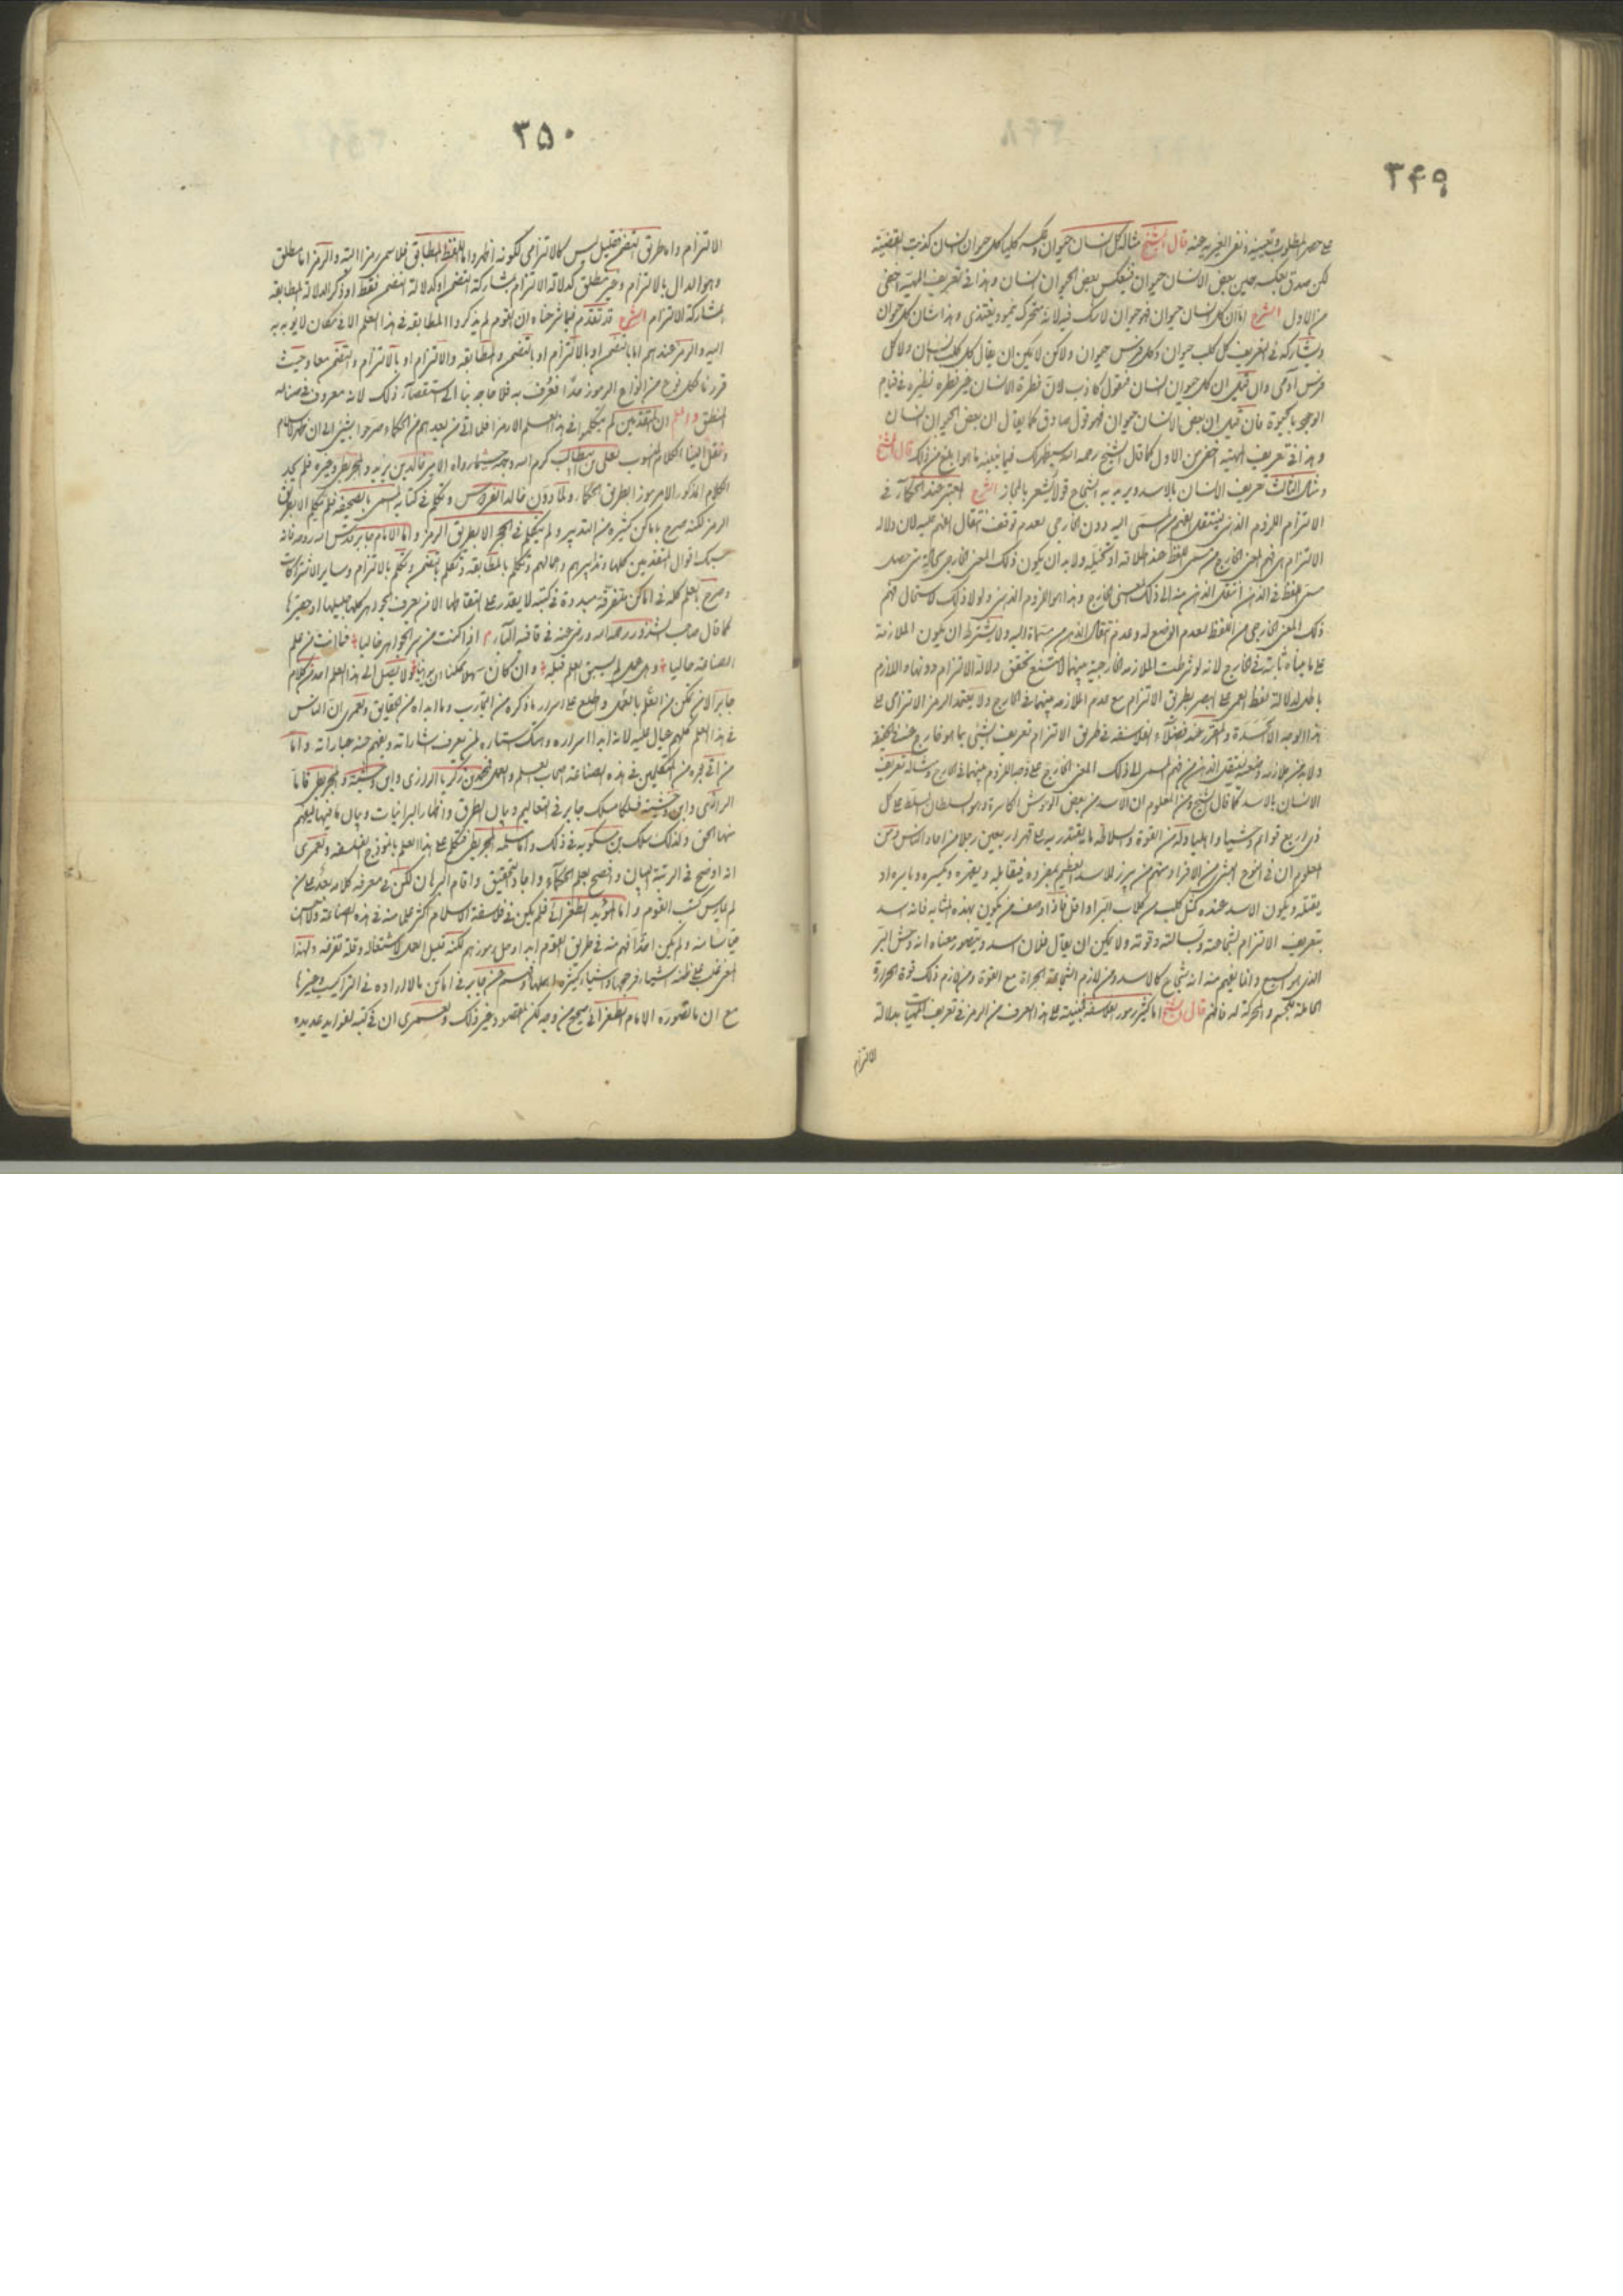 ۳۴۹
على حصر المطلوب وتعيينه ونفى الغيرية عنه قال الشيخ مثاله كل انسان حيوان وعكسه كليا كل حيوان انسان كذبت القضية
لكن صدق بعكسه حين بعض الانسان حيوان فينعكس بعض الحيوان انسان وهذا فى تعريف المهية اخفى
من الاول الشرح اما ان كل انسان حيوان فهو حيوان لا شك فيه لانه متحرك ينمو ويغتذى وهذا شان كل حيوان
ويشاركه فى التعريف كل كلب حيوان وكل فرس حيوان ولاكن لا يمكن ان يقال كل كلب انسان ولا كل
فرس آدمى وان قيل ان كل حيوان انسان فنقول كاذب لان فطرة الانسان غير فطرة نظيره فى قيام
الوجود بالحيوة فان قيل ان بعض الانسان حيوان فهو قول صادق كما يقال ان بعض الحيوان انسان
وهذا فى تعريف المهية اخفى من الاول كما قال الشيخ رحمه الله سيظهر لك فيما نبينه ما هو ابلغ من ذلك قال الشيخ
ومثال الثالث تعريف الانسان بالاسد ويريد به الشجاع قولا يشعر بالمجاز الشرح المعتبر عند الحكماء فى
الالتزام اللزوم الذهنى لينتقل الفهم من المسمى اليه دون الخارجى لعدم توقف انتقال الفهم عليه لان دلالة
الالتزام هى فهم المعنى الخارج من مسمى اللفظ عند اطلاقه او تخيله ولا بد ان يكون ذلك المعنى الخارجى بحيث متى حصل
مسمى اللفظ فى الذهن انتقل الذهن منه الى ذلك المعنى الخارج وهذا هو اللزوم الذهنى ولولا ذلك لاستحال فهم
ذلك المعنى الخارجى من اللفظ لعدم الوضع له وعدم انتقال الذهن من مسماه اليه ولا يشترط ان يكون الملازمة
على ما بيناه ثابتة فى الخارج لانه لو شرطت الملازمة الخارجية بينهما لامتنع تحقق دلالة الالتزام دونها واللازم
باطل لدلالة لفظ العمى على البصر بطريق الالتزام مع عدم الملازمة بينهما فى الخارج ولا يعتمد الرمز الالتزامى على
هذا الوجه الا لشدة والمقرر عند فضلاء الفلاسفة فى طريق الالتزام تعريف الشئ بما هو خارج عنه فى الحقيقة
ولا بد من ملازمة ذهنية لينتقل الذهن من فهم المسمى الى ذلك المعنى الخارج على وجه اللزوم بينهما فى الخارج ومثاله تعريف
الانسان بالاسد كما قال الشيخ ومن المعلوم ان الاسد من بعض الوحوش الكاسرة وهو السلطان المسلط على كل
ذى اربع قوائم مشيا واعليا وله من القوة والسلاطة ما يقتدر به على قهر اربعين رجلا من احاد الناس ومن
المعلوم ان فى النوع البشرى من الافراد منهم من يبرز للاسد العظيم بمفرده فيقابله ويقهره ويكسره وياسره او
يقتله ويكون الاسد عنده كمثل كلب من كلاب البر او اقل فاذا وصف من يكون بهذه المثابة فانه اسد
بتعريف الالتزام لشجاعته وبسالته وقوته ولا يمكن ان يقال فلان اسد ويتصور معناه انه وحش البر
الذى هو السبع وانما يفهم منه انه شجاع كالاسد ومن لازم الشجاعة الجراة مع القوة ومن لازم ذلك قوة الحرارة
الحاملة للجسم والحركة له فافهم قال الشيخ اما اكثر رموز الفلاسفة المبنية على هذا الصرف من الرمز فى تعريف المهيات بدلالة
الالتزام
۳۵۰
الالتزام واما طريق التضمن فقليل ليس كالالتزامى لكونه اظهر واما اللفظ المطابق فلا يسمى رمزا البتة والرمز اما مطلق
وهو الدال بالالتزام وغير مطلق كدلالة الالتزام بمشاركة التضمن او كدلالة التضمن فقط او ذكر الدلالة المطابقة
بمشاركة الالتزام الشرح قد تقدم فيما شرحناه ان القوم لم يذكروا المطابقة فى هذا العلم الا فى مكان لا يؤبه به
اليه والرمز عندهم اما بالتضمن او بالالتزام او بالتضمن والمطابقة والالتزام او بالالتزام والتضمن معا وحيث
قررنا لكل نوع من انواع الرموز حدا فعرف به فلا حاجة بنا الى استقصاء ذلك لانه معروف فى صناعة
المنطق واعلم ان المتقدمين لم يتكلموا فى هذا العلم الا رمزا فلما اتى من بعدهم من الحكماء صرحوا بشئ الى ان ظهر الاسلام
ونقل الينا الكلام المنسوب لعلى بن ابيطالب كرم الله وجهه مما رواه الامير خالد بن يزيد والمجريطى وغيره فلم نجد
الكلام المذكور الا مرموزا بطريق الحكماء ولما دون خالد الفردوس وتكلم فى كتابه المسمى بالصحيفة فلم يتكلم الا بطريق
الرمز لكنه صرح باماكن كثيرة من التدبير ولم يتكلم فى الحجر الا بطريق الرمز واما الامام جابر قدس الله روحه فانه
سبك اقوال المتقدمين كلها وتدابيرهم واعمالهم وتكلم بالمطابقة وتكلم بالتضمن وتكلم بالالتزام وساير الاشتراكات
وصرح بالعلم كله فى اماكن متفرقة مبددة فى كتبه لا يقدر على التقاطها الا من يعرف الجواهر كلها جليلها وحقيرها
كما قال صاحب الشذور رحمه الله ورضى عنه فى قافية التاء اذا كنت من سر الجواهر خاليا فما انت من علم
الصناعة حاليا وهل على لم يسبق بعلم قبله وان كان سهلا ممكنا ان يرانيا ولا يصل الى هذا العلم احد من كلام
جابر الا من تمكن من العلم بالعمل واطلع على اسرار ما ذكره من التجارب وما ابداه من الحقايق ولعمرى ان الناس
فى هذا العلم كلهم عيال عليه لانه ابدا اسراره وهتك استاره لمن يعرف اشاراته ويفهم عنه عباراته واما
من اتى بعده من المتكلمين فى هذه الصناعة اصحاب العلم والعمل فمحمد بن زكريا الرازى وابن وحشية والمجريطى فاما
الرازى وابن وحشية فسلكا مسلك جابر فى التعاليم وبيان الطرق واظهار البرانيات وبيان ما فيها ليفهم
منها الحق وكذلك سلك بن مسكويه فى ذلك واما مسلمة المجريطى فتكلم على هذا العلم بانموذج الفلسفة ولعمرى
انه اوضح فى الرتبة البيان وافصح بعلم الحكماء واجاد التحقيق واقام البرهان لكن فى معرفة كلامه بعد على من
لم يمارس كتب القوم واما المؤيد الطغرائى فلم يكن فى فلاسفة الاسلام اكثر علما منه فى هذه الصناعة ولا احسن
قياسا منه ولم يكن احدا افهم منه فى طريق القوم ابدا وحل رموزهم لكنه قليل العمل لاشتغاله وقلة تفرغه ولهذا
المعنى غلب على ظنه اشياء فرجحها واشياء كثيرة اهملها وقسم عن جابر فى اماكن ما لا اراده فى التراكيب وغيرها
مع ان ما تصوره الامام الطغرائى صحيح من وجه لكن المقصود غير ذلك ولعمرى ان فى كتبه لفوايد عديده